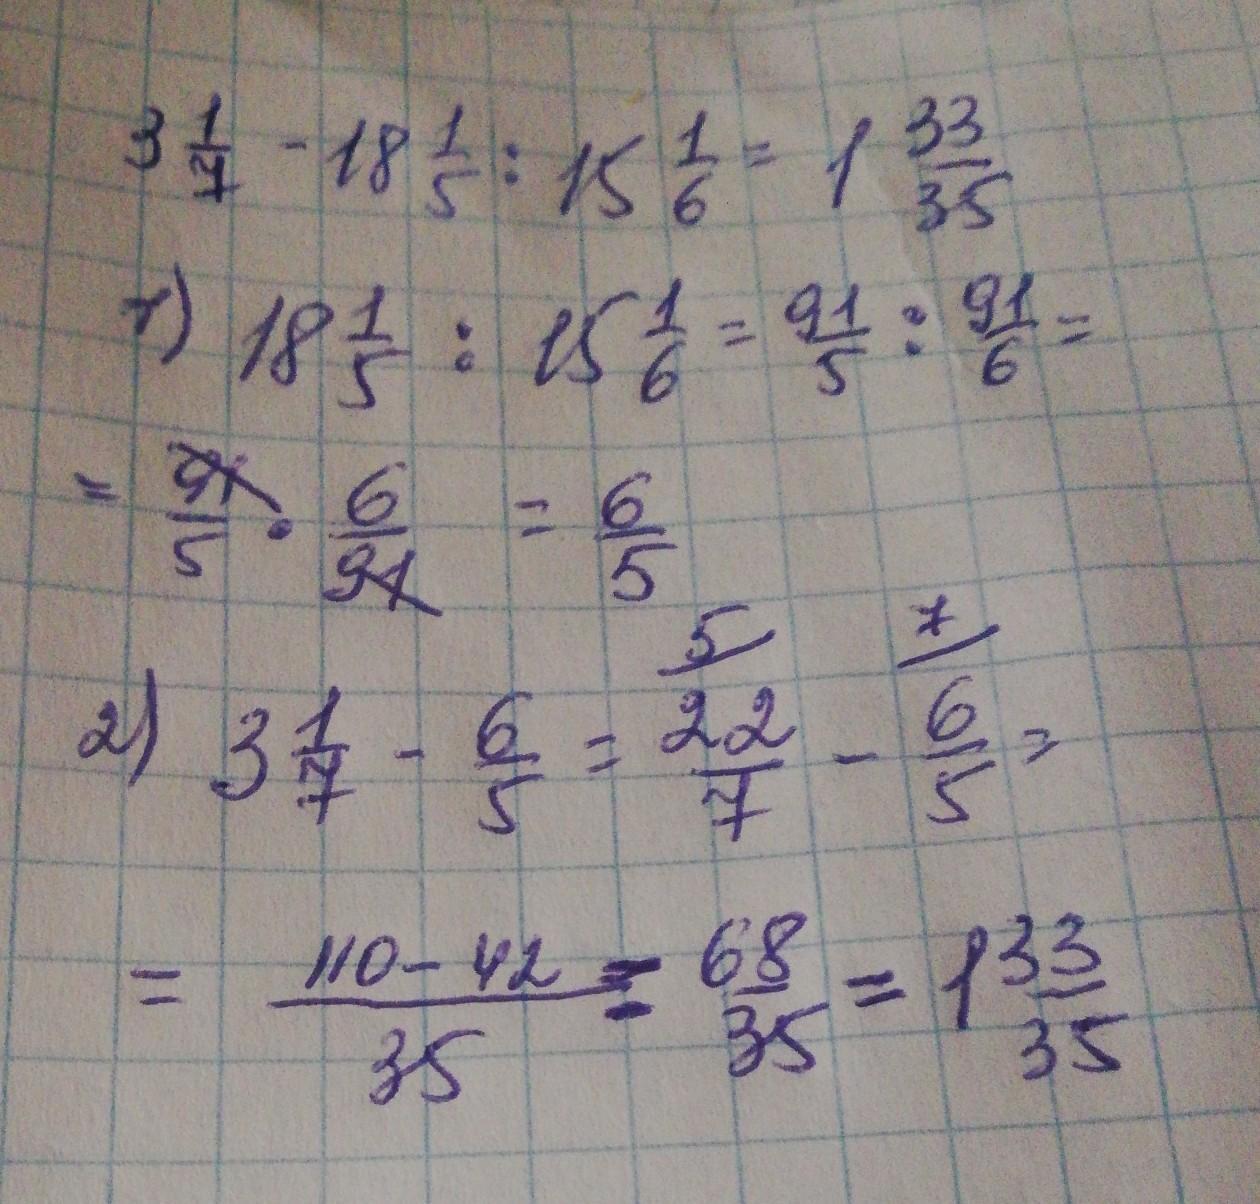 3 1/7 - 18 1/5 : 15 1/6 = 1 33/35
1) 18 1/5 : 15 1/6 = 91/5 : 91/6 =
= 91/5 · 6/91 = 6/5
5/ 7/
2) 3 1/7 - 6/5 = 22/7 - 6/5 =
= (110 - 42)/35 = 68/35 = 1 33/35